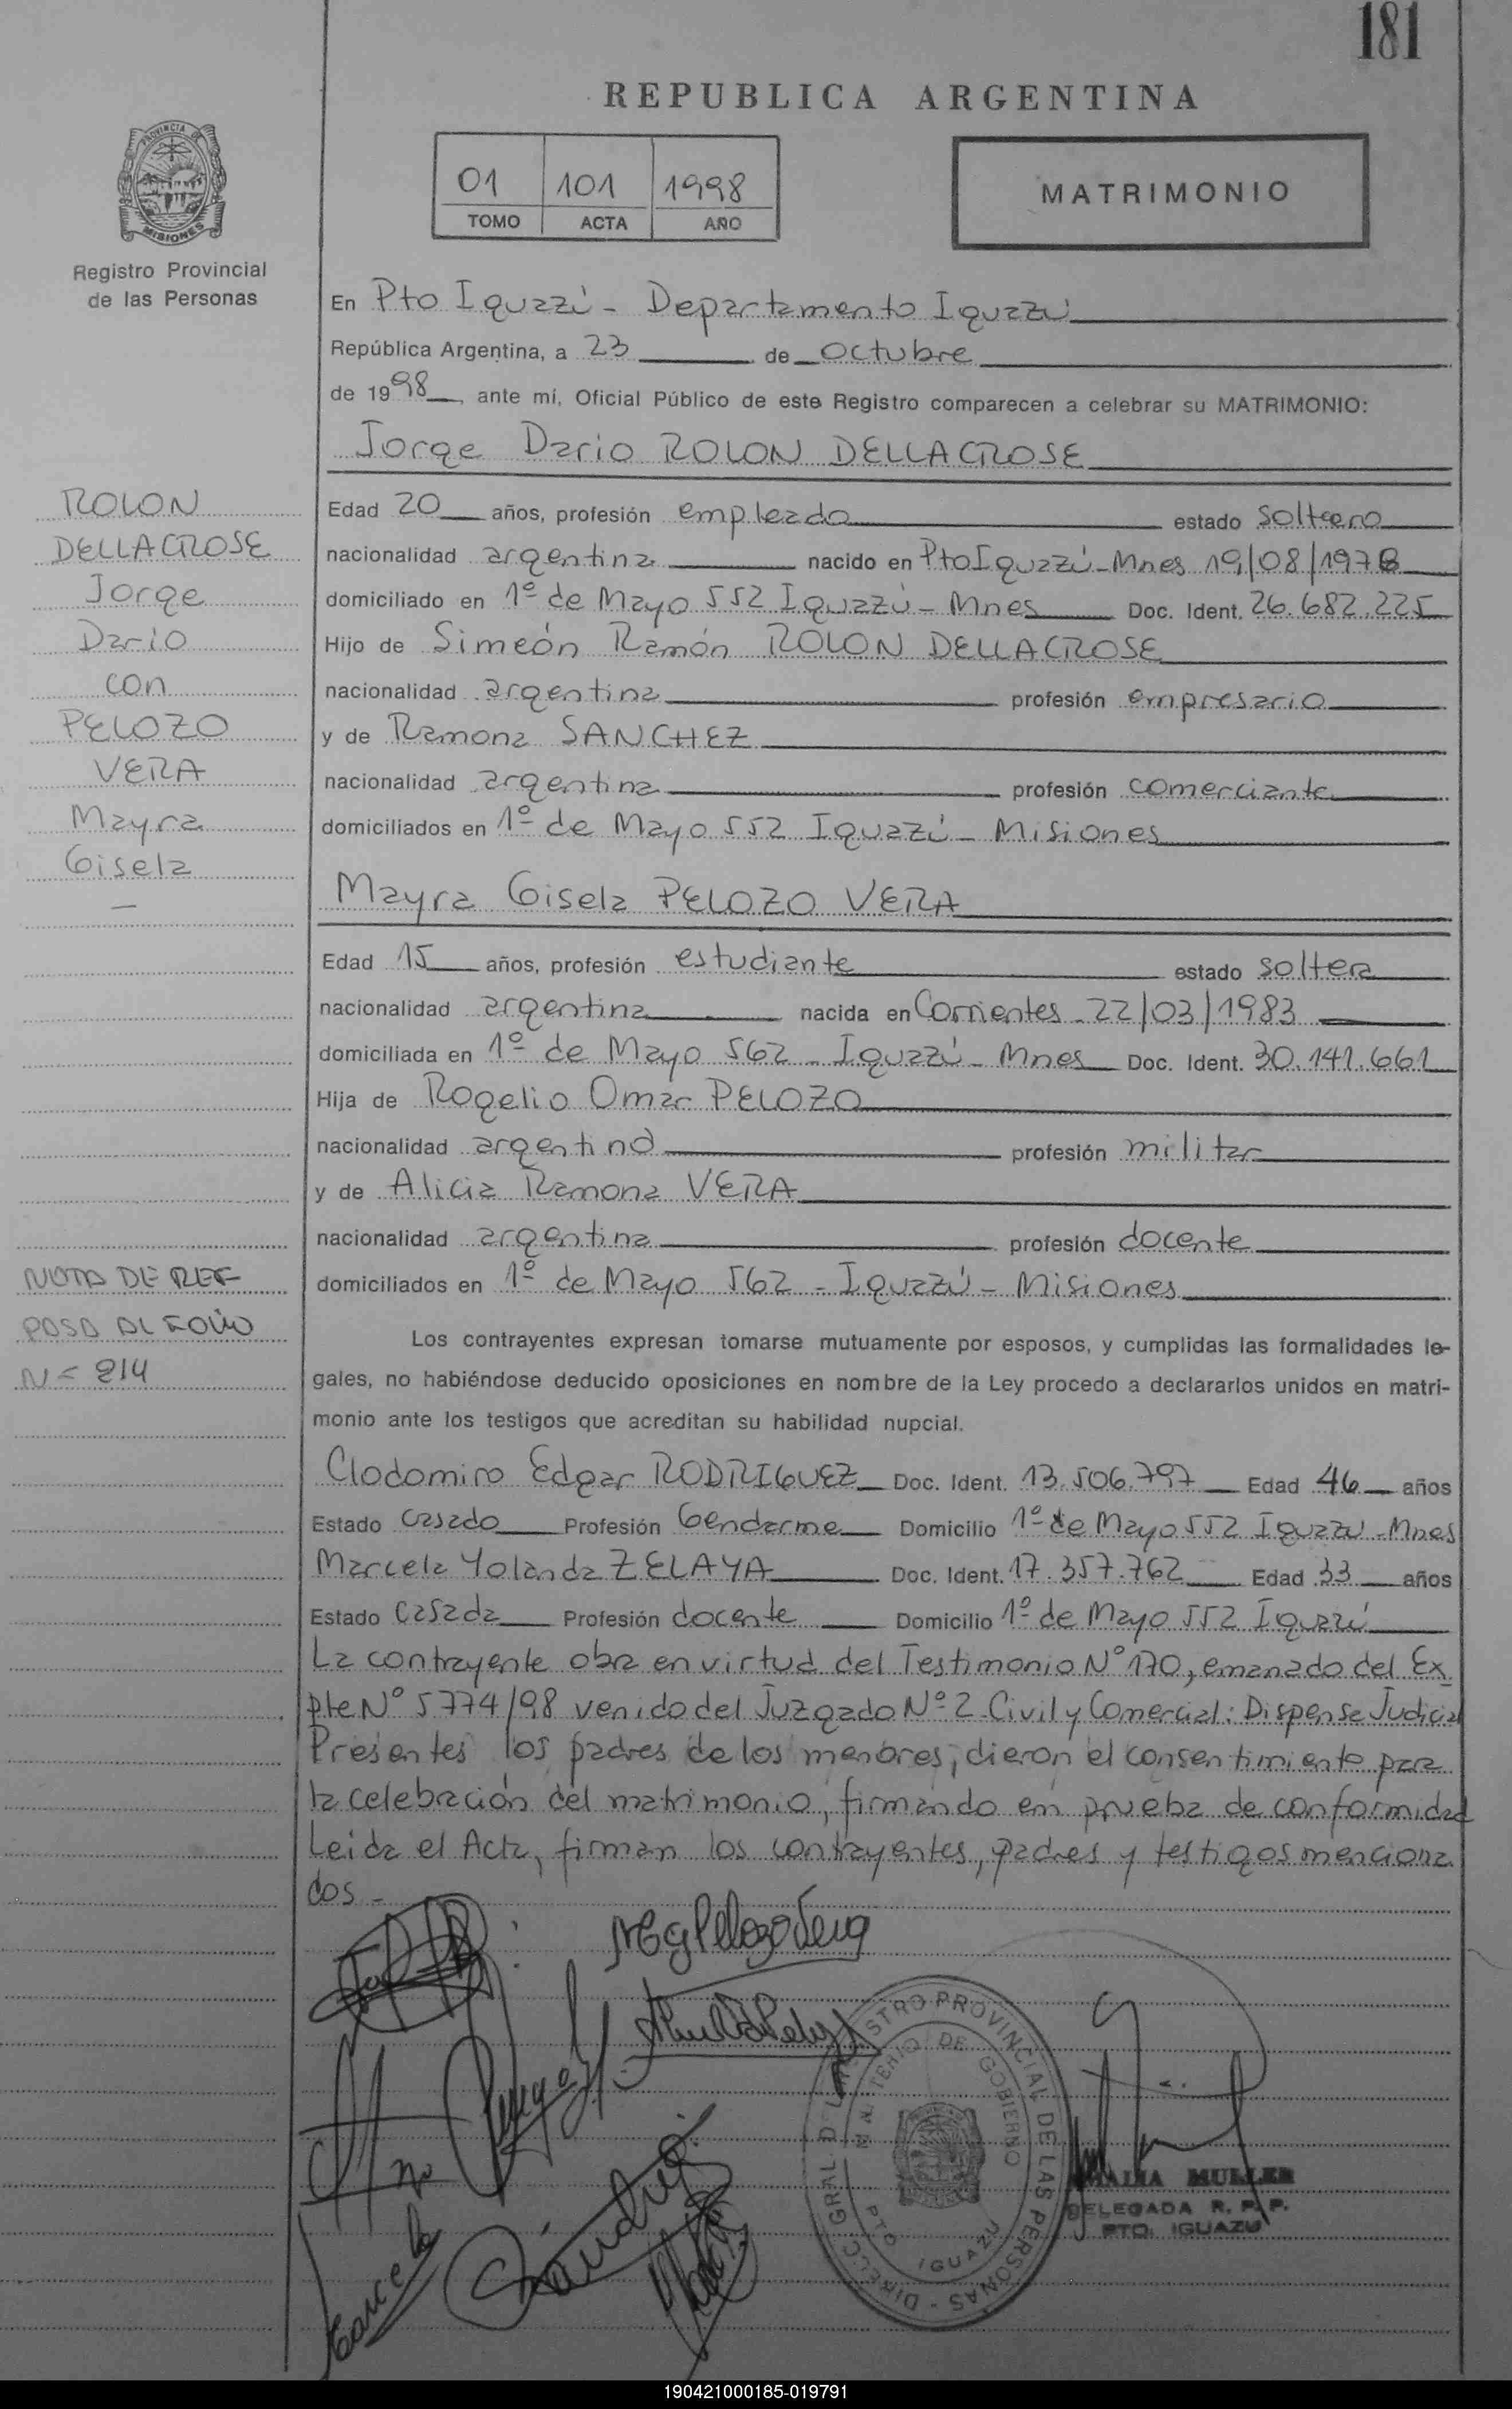 181
REPUBLICA ARGENTINA
01 101 1998
TOMO ACTA AÑO
MATRIMONIO
PROVINCIA DE
MISIONES
Registro Provincial
de las Personas
En Pto Iguazú - Departamento Iguazú
República Argentina, a 23 de octubre
de 1998, ante mí, Oficial Público de este Registro comparecen a celebrar su MATRIMONIO:
Jorge Dario ROLON DELLAGROSE
Edad 20 años, profesión empleado estado soltero
nacionalidad argentina nacido en Pto Iguazú - Mnes 19/08/1978
domiciliado en 1º de Mayo 552 Iguazú - Mnes Doc. Ident. 26.682.225
Hijo de Simeón Ramón ROLON DELLAGROSE
nacionalidad argentina profesión empresario
y de Ramona SANCHEZ
nacionalidad argentina profesión comerciante
domiciliados en 1º de Mayo 552 Iguazú - Misiones
Mayra Gisela PELOZO VERA
Edad 15 años, profesión estudiante estado soltera
nacionalidad argentina nacida en Corrientes - 22/03/1983
domiciliada en 1º de Mayo 562 - Iguazú - Mnes Doc. Ident. 30.141.661
Hija de Rogelio Omar PELOZO
nacionalidad argentino profesión militar
y de Alicia Ramona VERA
nacionalidad argentina profesión docente
domiciliados en 1º de Mayo 562 - Iguazú - Misiones
Los contrayentes expresan tomarse mutuamente por esposos, y cumplidas las formalidades le-
gales, no habiéndose deducido oposiciones en nombre de la Ley procedo a declararlos unidos en matri-
monio ante los testigos que acreditan su habilidad nupcial.
Clodomiro Edgar RODRIGUEZ Doc. Ident. 13.506.797 Edad 46 años
Estado casado Profesión Gendarme Domicilio 1º de Mayo 552 Iguazú - Mnes
Marcela Yolanda ZELAYA Doc. Ident. 17.357.762 Edad 33 años
Estado casada Profesión docente Domicilio 1º de Mayo 552 Iguazú
La contrayente obra en virtud del Testimonio Nº 170, emanado del Ex-
pte Nº 5774/98 venido del Juzgado Nº 2 Civil y Comercial: Dispense Judicial
Presentes los padres de los menores, dieron el consentimiento para
la celebración del matrimonio, firmando en prueba de conformidad
Leida el Acta, firman los contrayentes, padres y testigos menciona
dos -
ROLON
DELLAGROSE
Jorge
Dario
con
PELOZO
VERA
Mayra
Gisela
NOTA DE REF
PASA AL FOLIO
N= 214
MgPelozoVera
DIRECC. GRAL. DEL REGISTRO PROVINCIAL DE LAS PERSONAS
MINISTERIO DE GOBIERNO
PTO IGUAZU
MULLER
DELEGADA R. P. P.
PTO. IGUAZU
190421000185-019791